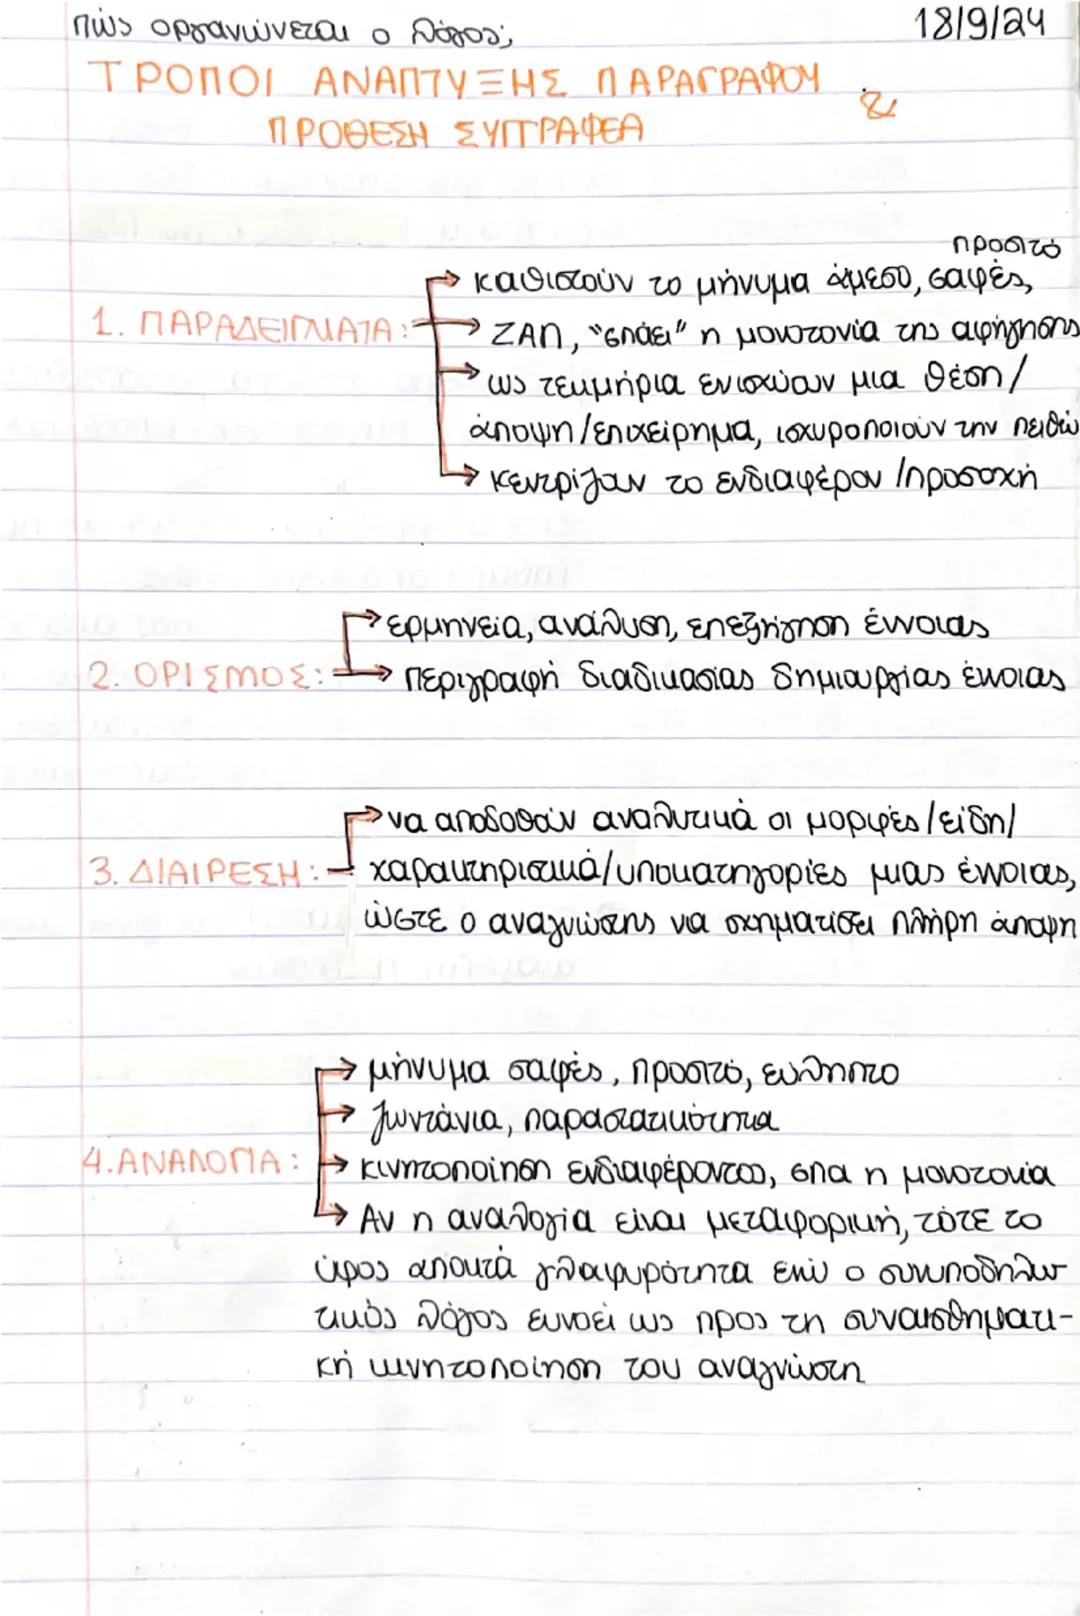 Πώς οργανώνεται ο λόγος; 18/9/24
ΤΡΟΠΟΙ ΑΝΑΠΤΥΞΗΣ ΠΑΡΑΓΡΑΦΟΥ &
ΠΡΟΘΕΣΗ ΣΥΓΓΡΑΦΕΑ
προσιτό
→ καθιστούν το μήνυμα άμεσο, σαφές,
1. ΠΑΡΑΔΕΙΓΜΑΤΑ: → ΖΑΠ, "σπάει" η μονοτονία της αφήγησης
→ ως τεκμήρια ενισχύουν μια θέση/
άποψη/επιχείρημα, ισχυροποιούν την πειθώ
→ κεντρίζουν το ενδιαφέρον/προσοχή
→ ερμηνεία, ανάλυση, επεξήγηση έννοιας
2. ΟΡΙΣΜΟΣ: → περιγραφή διαδικασίας δημιουργίας έννοιας
→ να αποδοθούν αναλυτικά οι μορφές/είδη/
3. ΔΙΑΙΡΕΣΗ: χαρακτηριστικά/υποκατηγορίες μιας έννοιας,
ώστε ο αναγνώστης να σχηματίσει πλήρη άποψη
→ μήνυμα σαφές, προσιτό, εύληπτο
→ ζωντάνια, παραστατικότητα
4. ΑΝΑΛΟΓΙΑ: → κινητοποίηση ενδιαφέροντος, σπα η μονοτονία
→ Αν η αναλογία είναι μεταφορική, τότε το
ύφος αποκτά γλαφυρότητα ενώ ο συνυποδηλω
τικός λόγος ευνοεί ως προς τη συναισθηματι-
κή κινητοποίηση του αναγνώστη